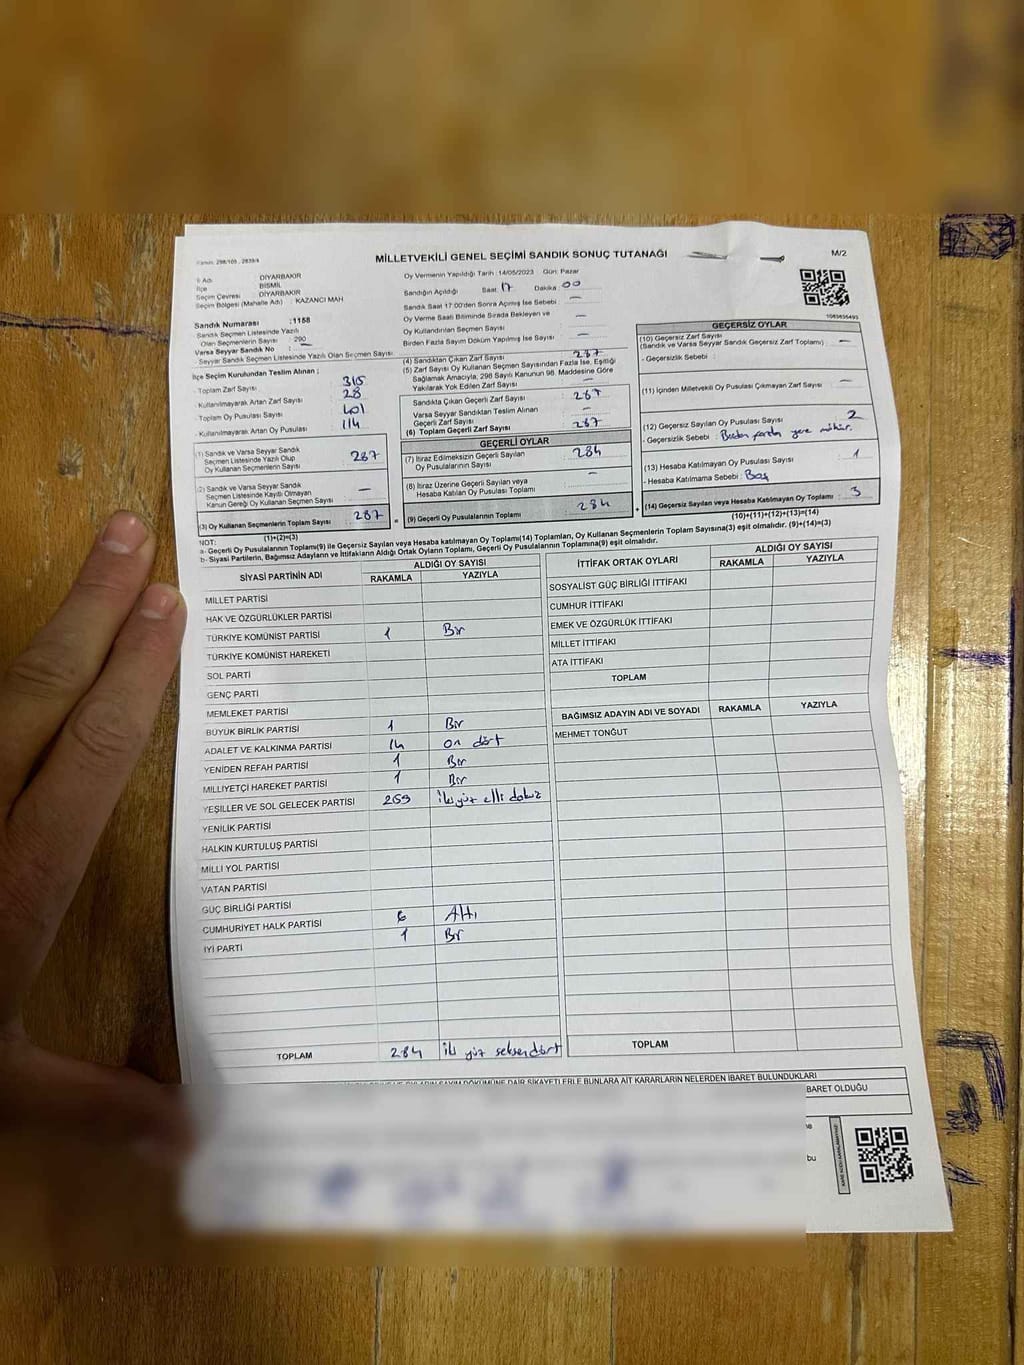 Kanun: 298/105 , 2839/4
MİLLETVEKİLİ GENEL SEÇİMİ SANDIK SONUÇ TUTANAĞI
M/2
İl Adı : DİYARBAKIR
İlçe BİSMİL
Seçim Çevresi DİYARBAKIR
Seçim Bölgesi (Mahalle Adı) : KAZANCI MAH
Sandık Numarası : 1158
Sandık Seçmen Listesinde Yazılı
Olan Seçmenlerin Sayısı : 290
Varsa Seyyar Sandık No : —
Seyyar Sandık Seçmen Listesinde Yazılı Olan Seçmen Sayısı
İlçe Seçim Kurulundan Teslim Alınan ;
- Toplam Zarf Sayısı 315
- Kullanılmayarak Artan Zarf Sayısı 28
- Toplam Oy Pusulası Sayısı 401
- Kullanılmayarak Artan Oy Pusulası 114
(1) Sandık ve Varsa Seyyar Sandık
Seçmen Listesinde Yazılı Olup
Oy Kullanan Seçmenlerin Sayısı : 287
(2) Sandık ve Varsa Seyyar Sandık
Seçmen Listesinde Kayıtlı Olmayan
Kanun Gereği Oy Kullanan Seçmen Sayısı : —
(3) Oy Kullanan Seçmenlerin Toplam Sayısı : 287
(1)+(2)=(3)
Oy Vermenin Yapıldığı Tarih : 14/05/2023 Gün: Pazar
Sandığın Açıldığı Saat 17 Dakika 00
Sandık Saat 17:00'den Sonra Açılmış İse Sebebi : —
Oy Verme Saati Bitiminde Sırada Bekleyen ve
Oy Kullandırılan Seçmen Sayısı : —
Birden Fazla Sayım Döküm Yapılmış İse Sayısı : —
(4) Sandıktan Çıkan Zarf Sayısı : 287
(5) Zarf Sayısı Oy Kullanan Seçmen Sayısından Fazla İse, Eşitliği
Sağlamak Amacıyla, 298 Sayılı Kanunun 98. Maddesine Göre
Yakılarak Yok Edilen Zarf Sayısı : —
Sandıkta Çıkan Geçerli Zarf Sayısı : 287
Varsa Seyyar Sandıktan Teslim Alınan
Geçerli Zarf Sayısı : —
(6) Toplam Geçerli Zarf Sayısı : 287
GEÇERLİ OYLAR
(7) İtiraz Edilmeksizin Geçerli Sayılan
Oy Pusulalarının Sayısı : 284
(8) İtiraz Üzerine Geçerli Sayılan veya
Hesaba Katılan Oy Pusulası Toplamı : —
= (9) Geçerli Oy Pusulalarının Toplamı : 284 +
1083695493
GEÇERSİZ OYLAR
(10) Geçersiz Zarf Sayısı
(Sandık ve Varsa Seyyar Sandık Geçersiz Zarf Toplamı) : —
- Geçersizlik Sebebi :
(11) İçinden Milletvekili Oy Pusulası Çıkmayan Zarf Sayısı : —
(12) Geçersiz Sayılan Oy Pusulası Sayısı : 2
- Geçersizlik Sebebi : Birden fazla yere mühür.
(13) Hesaba Katılmayan Oy Pusulası Sayısı : 1
- Hesaba Katılmama Sebebi : Boş
(14) Geçersiz Sayılan veya Hesaba Katılmayan Oy Toplamı : 3
(10)+(11)+(12)+(13)=(14)
NOT:
a- Geçerli Oy Pusulalarının Toplamı(9) ile Geçersiz Sayılan veya Hesaba katılmayan Oy Toplamı(14) Toplamları, Oy Kullanan Seçmenlerin Toplam Sayısına(3) eşit olmalıdır. (9)+(14)=(3)
b- Siyasi Partilerin, Bağımsız Adayların ve İttifakların Aldığı Ortak Oyların Toplamı, Geçerli Oy Pusulalarının Toplamına(9) eşit olmalıdır.
SİYASİ PARTİNİN ADI ALDIĞI OY SAYISI
RAKAMLA YAZIYLA
MİLLET PARTİSİ
HAK VE ÖZGÜRLÜKLER PARTİSİ
TÜRKİYE KOMÜNİST PARTİSİ 1 Bir
TÜRKİYE KOMÜNİST HAREKETİ
SOL PARTİ
GENÇ PARTİ
MEMLEKET PARTİSİ
BÜYÜK BİRLİK PARTİSİ 1 Bir
ADALET VE KALKINMA PARTİSİ 14 on dört
YENİDEN REFAH PARTİSİ 1 Bir
MİLLİYETÇİ HAREKET PARTİSİ 1 Bir
YEŞİLLER VE SOL GELECEK PARTİSİ 259 iki yüz elli dokuz
YENİLİK PARTİSİ
HALKIN KURTULUŞ PARTİSİ
MİLLİ YOL PARTİSİ
VATAN PARTİSİ
GÜÇ BİRLİĞİ PARTİSİ
CUMHURİYET HALK PARTİSİ 6 Altı
İYİ PARTİ 1 Bir
TOPLAM 284 iki yüz seksen dört
İTTİFAK ORTAK OYLARI ALDIĞI OY SAYISI
RAKAMLA YAZIYLA
SOSYALİST GÜÇ BİRLİĞİ İTTİFAKI
CUMHUR İTTİFAKI
EMEK VE ÖZGÜRLÜK İTTİFAKI
MİLLET İTTİFAKI
ATA İTTİFAKI
TOPLAM
BAĞIMSIZ ADAYIN ADI VE SOYADI RAKAMLA YAZIYLA
MEHMET TONĞUT
TOPLAM
SAYIM DÖKÜMÜNE DAİR ŞİKAYETLERLE BUNLARA AİT KARARLARIN NELERDEN İBARET BULUNDUKLARI
BARET OLDUĞU
bu